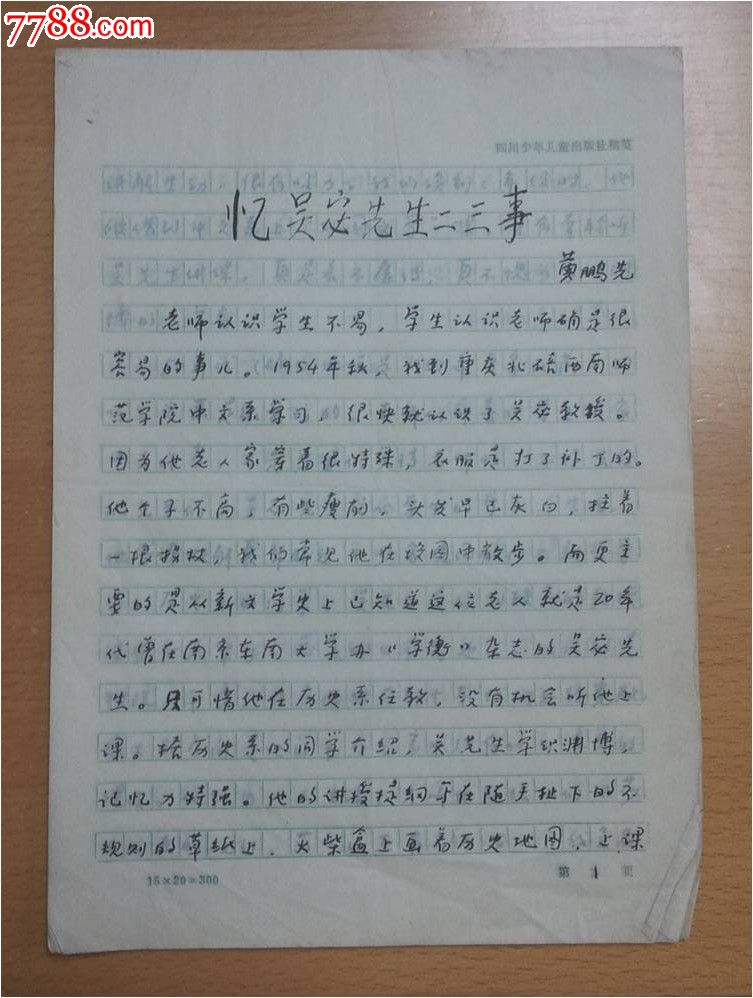 7788.com
四川少年儿童出版社稿笺
忆吴宓先生二三事
黄鹏先
老师认识学生不易，学生认识老师确是很
容易的事儿。1954年秋，我到重庆北碚西南师
范学院中文系学习，很快就认识了吴宓教授。
因为他老人家穿着很特殊，衣服是打了补丁的。
他个子不高，有些瘦削，头发早已灰白，拄着
一根拐杖，我们常见他在校园中散步。而更主
要的是从新文学史上已知道这位老人就是20年
代曾在南京东南大学办《学衡》杂志的吴宓先
生。只可惜他在历史系任教，没有机会听他上
课。据历史系的同学介绍，吴先生学识渊博，
记忆力特强。他的讲授提纲写在随手扯下的不
规则的草纸上，火柴盒上画着历史地图，上课
15×20=300
第1页